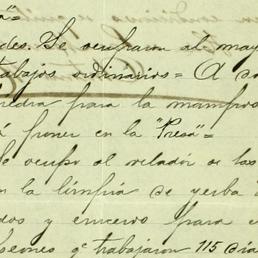 a"=
des. Se ocuparon al may
trabajos ordinarios = A
piedra para la mampos
á poner en la "Presa" =
lo ocupo al velador de las
n la limpiá de yerba
dos y encierro para
peones q. trabajaron 115 dia